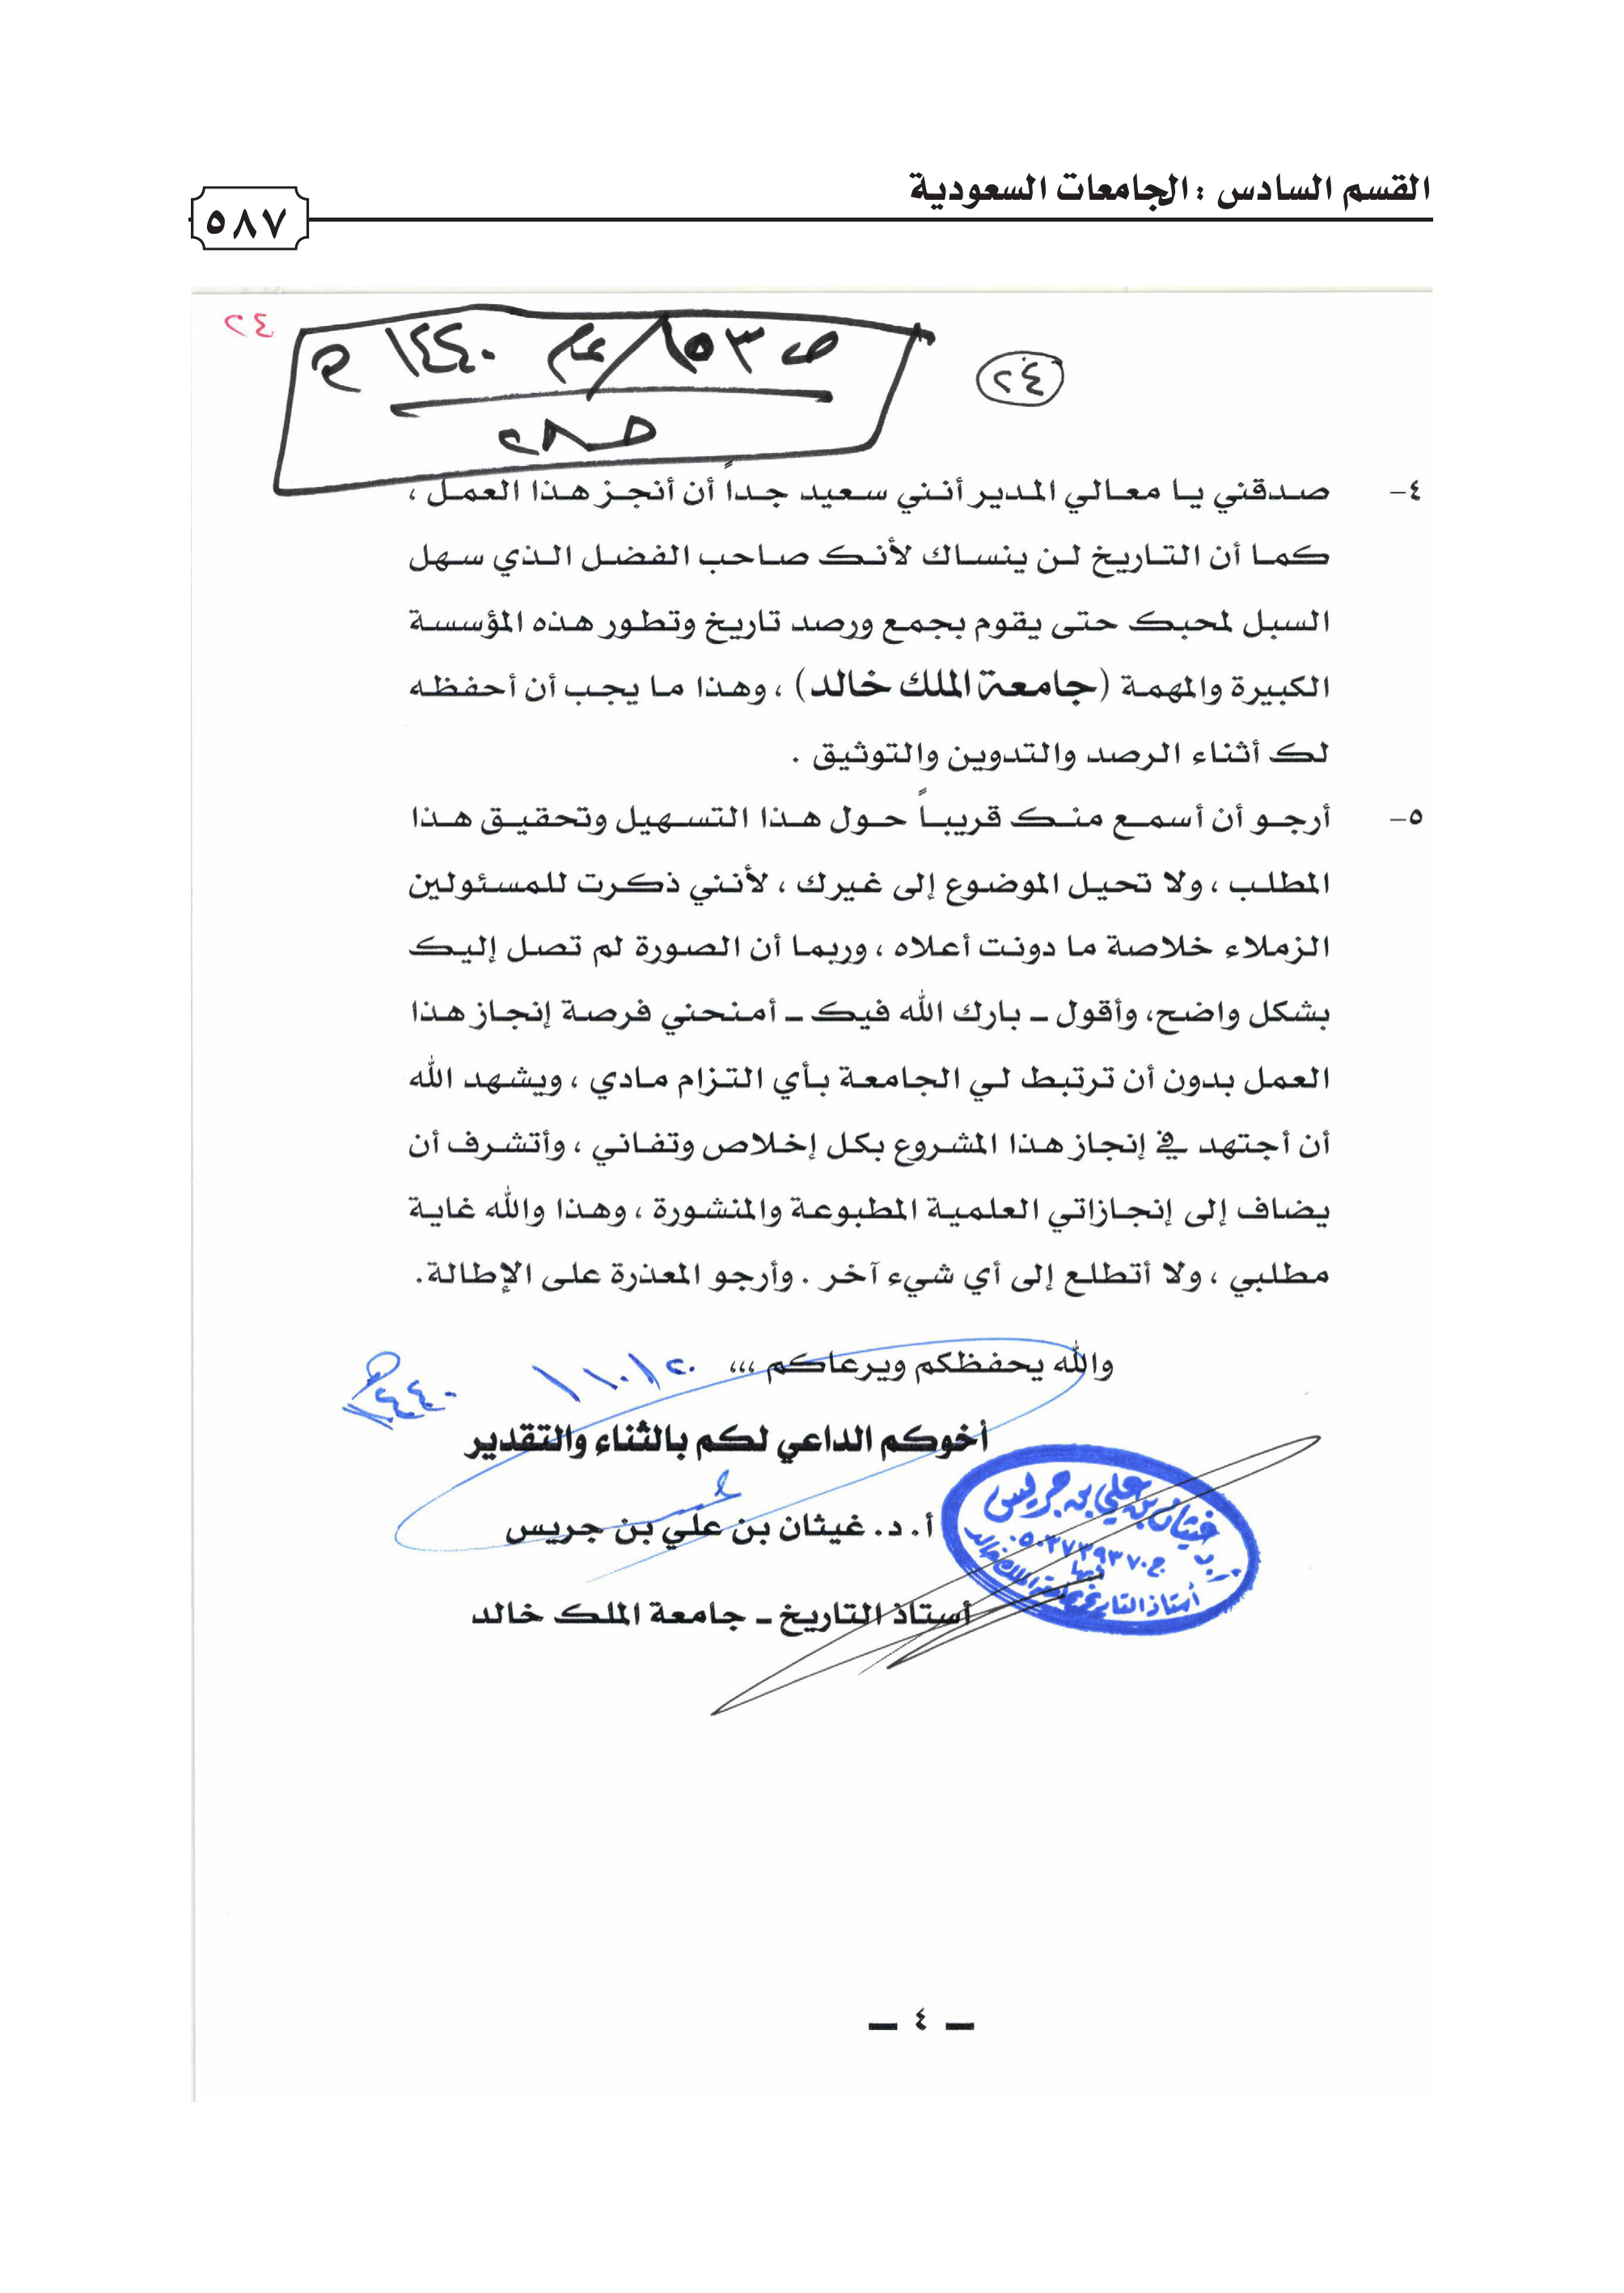 القسم السادس : الجامعات السعودية
٥٨٧
٢٤
ص ١٥٣ / عام ١٤٤٠ هـ
٢٤
٤- صدقني يا معالي المدير أنني سعيد جداً أن أنجز هذا العمل ،
كما أن التاريخ لن ينساك لأنك صاحب الفضل الذي سهل
السبل لمحبك حتى يقوم بجمع ورصد تاريخ وتطور هذه المؤسسة
الكبيرة والمهمة (جامعة الملك خالد) ، وهذا ما يجب أن أحفظه
لك أثناء الرصد والتدوين والتوثيق .
٥- أرجو أن أسمع منك قريباً حول هذا التسهيل وتحقيق هذا
المطلب ، ولا تحيل الموضوع إلى غيرك ، لأنني ذكرت للمسئولين
الزملاء خلاصة ما دونت أعلاه ، وربما أن الصورة لم تصل إليك
بشكل واضح، وأقول ـ بارك الله فيك ـ أمنحني فرصة إنجاز هذا
العمل بدون أن ترتبط لي الجامعة بأي التزام مادي ، ويشهد الله
أن أجتهد في إنجاز هذا المشروع بكل إخلاص وتفاني ، وأتشرف أن
يضاف إلى إنجازاتي العلمية المطبوعة والمنشورة ، وهذا والله غاية
مطلبي ، ولا أتطلع إلى أي شيء آخر . وأرجو المعذرة على الإطالة.
والله يحفظكم ويرعاكم ،،، ٢٠/١٠/١٤٤٠هـ
أخوكم الداعي لكم بالثناء والتقدير
أ. د. غيثان بن علي بن جريس
أستاذ التاريخ ـ جامعة الملك خالد
غيثان بن علي بن جريس
ج ٠٥٠٢٧٣٩٣٧٠
أبها
أستاذ التاريخ بجامعة الملك خالد
ـ ٤ ـ